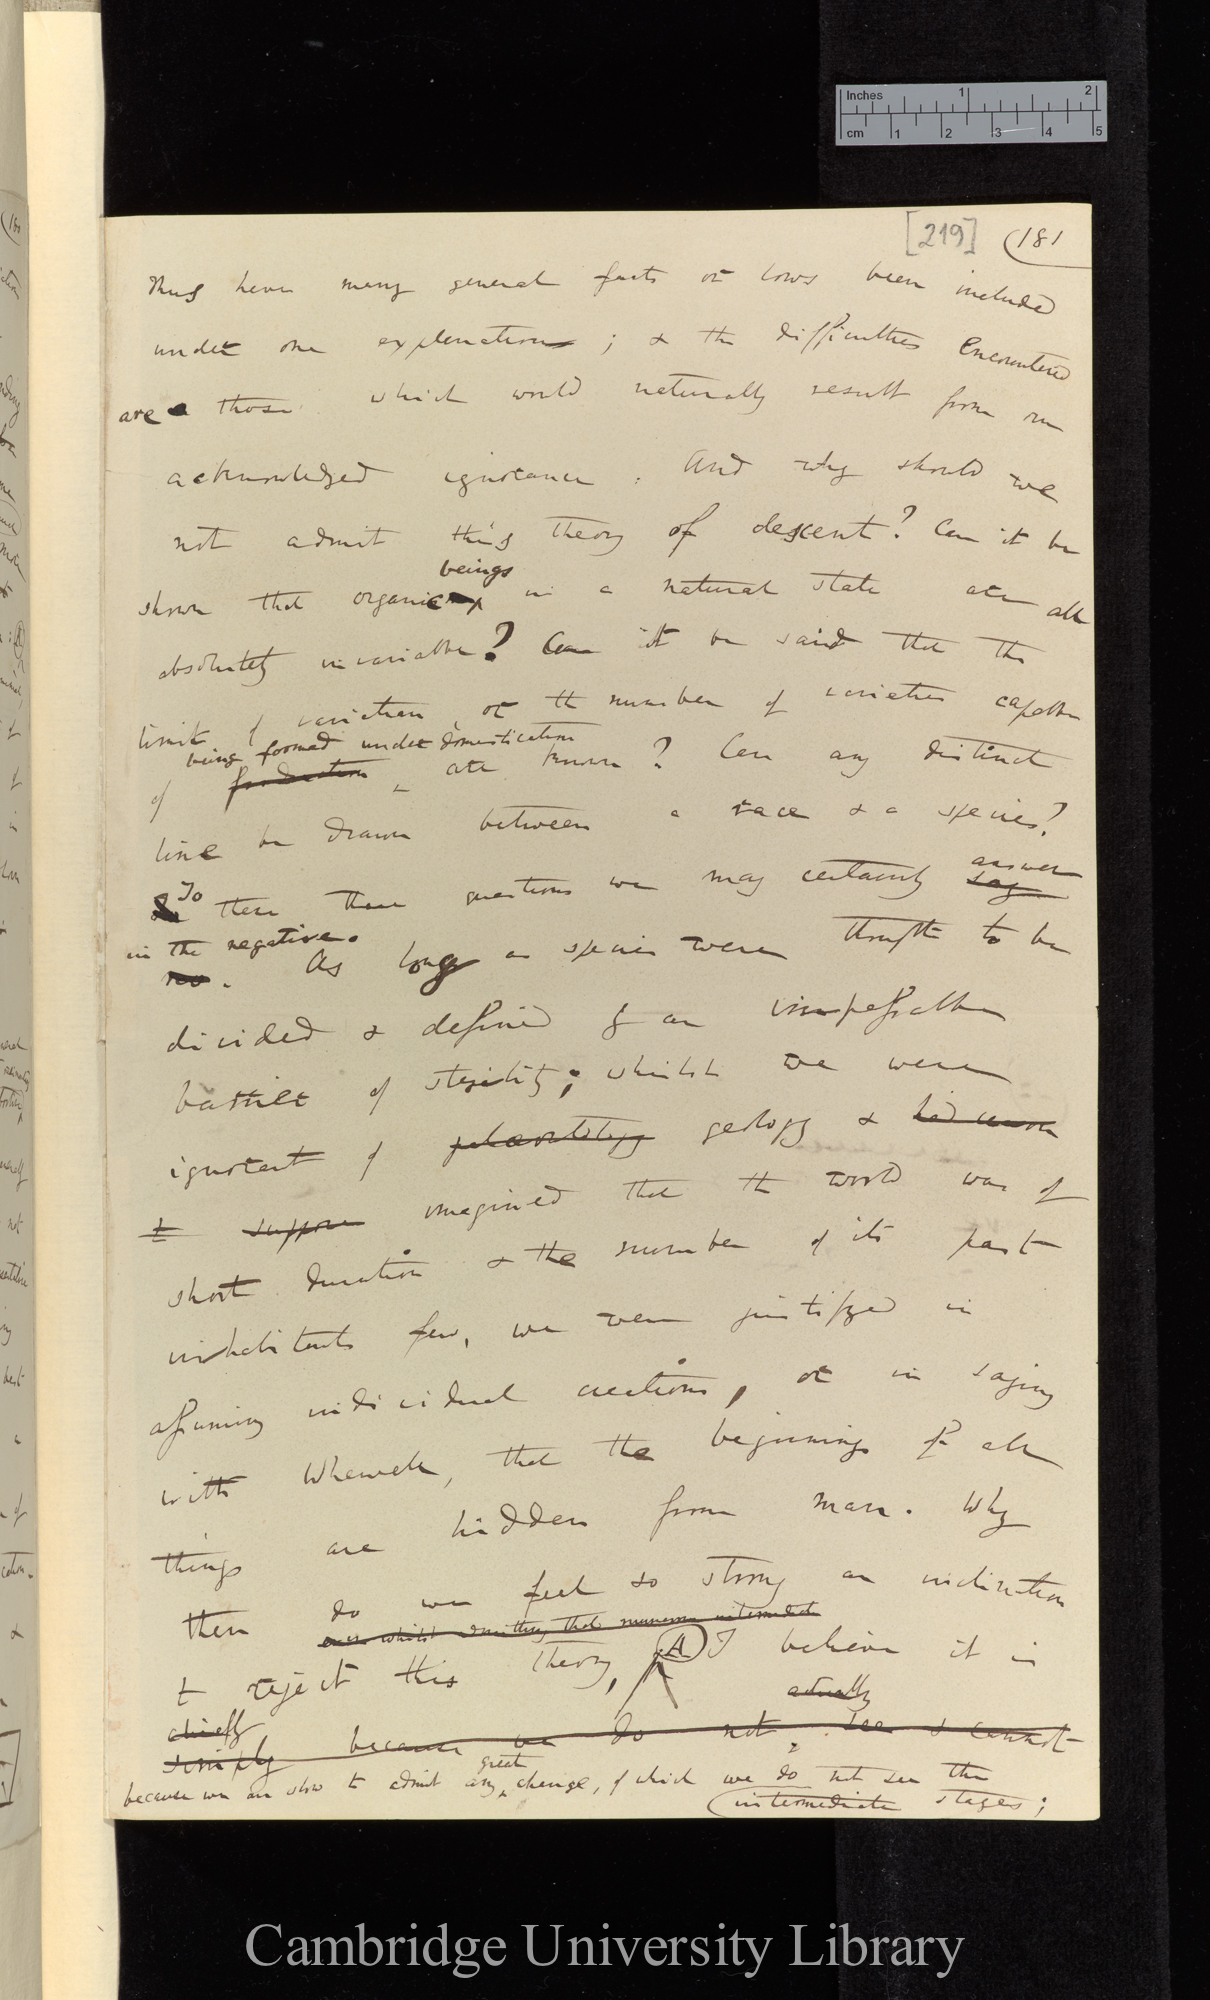 Inches 1 2
cm 1 2 3 4 5
[219] 181
Thus have many general facts or laws been included
under one explanation; & the difficulties encountered
are those which would naturally result from our
acknowledged ignorance. And why should we
not admit this theory of descent? Can it be
shown that organic beings in a natural state are all
absolutely invariable? Can it be said that the
limit of variation, or the number of varieties capable
being formed under domestication
of production are known? Can any distinct
line be drawn between a race & a species?
To these three questions we may certainly say answer
in the negative.
no. As long as species were thought to be
divided & defined by an impassable
barrier of sterility; whilst we were
ignorant of palæontology geology & had reason
to suppose imagined that the world was of
short duration & the number of its past
inhabitants few, we were justified in
assuming individual creations, or in saying
with Whewell, that the beginnings of all
things are hidden from man. Why
then do we feel so strong an inclination
even whilst admitting that numerous intermediate
to reject this theory, (A) I believe it is
actually
chiefly
simply because we do not see & cannot
because we are slow to admit any great change, of which we do not see the
intermediate stages;
Cambridge University Library